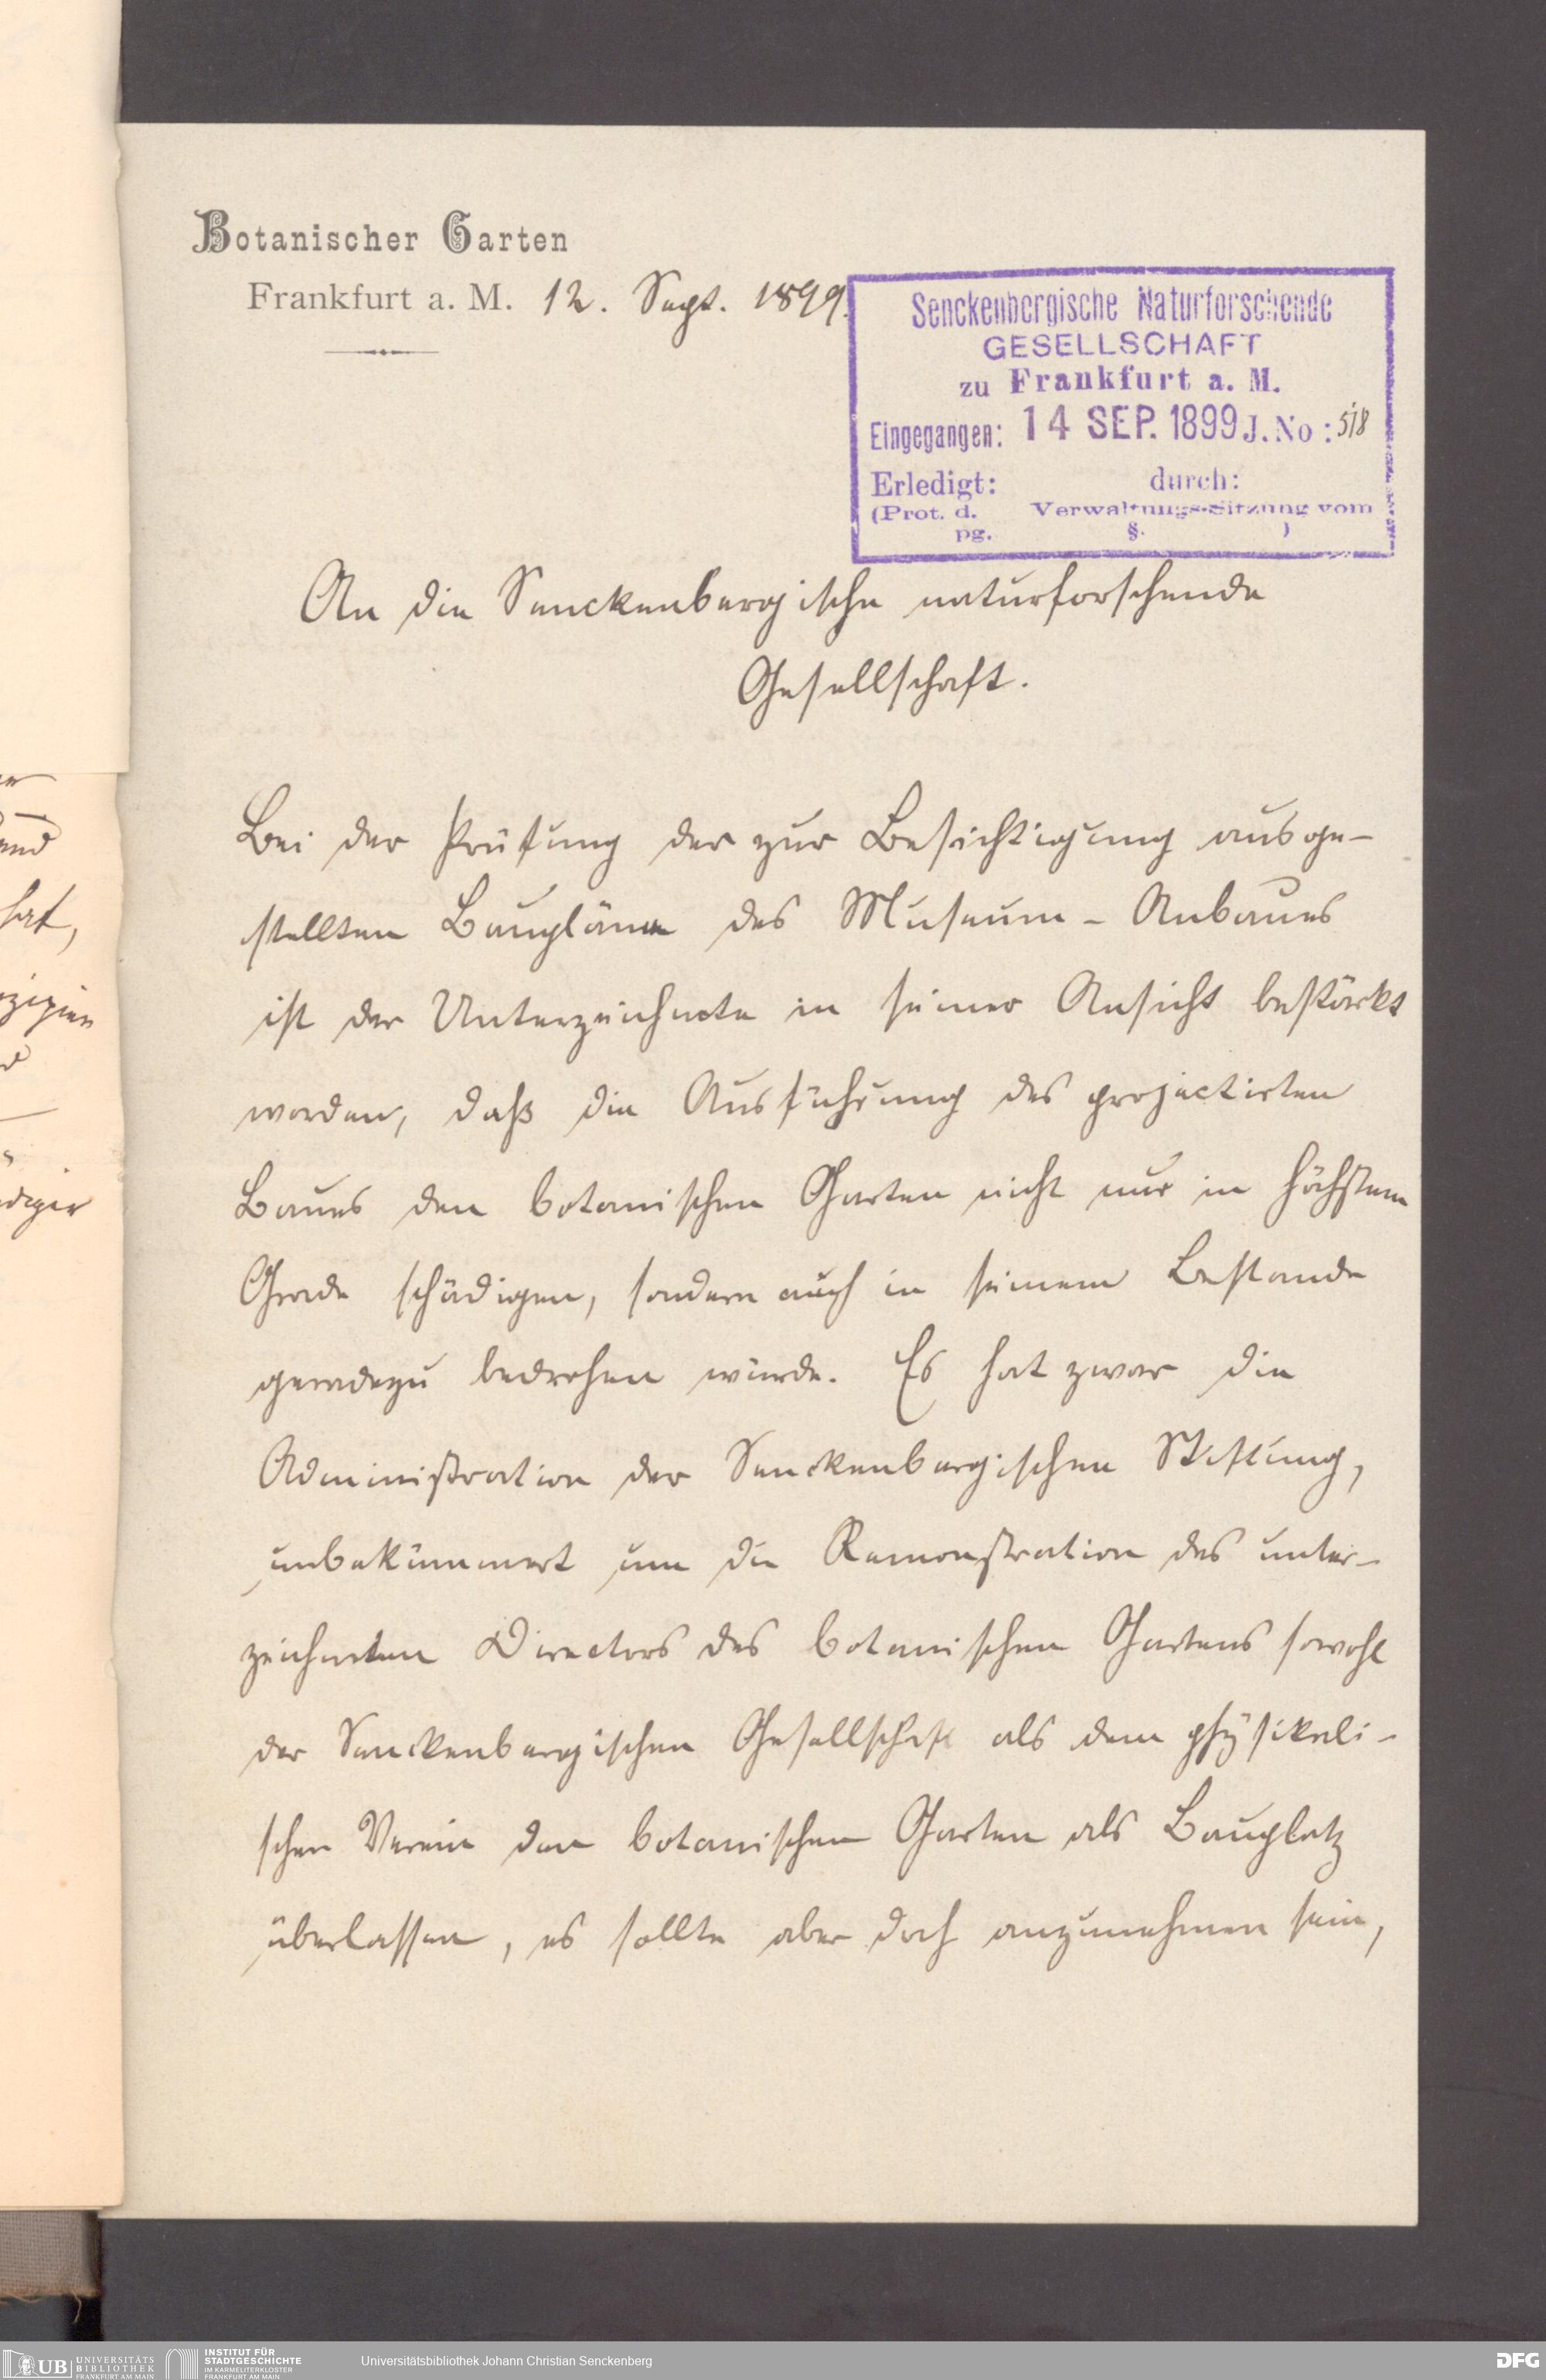 Botanischer Garten
Frankfurt a. M. 12. Sept. 1899.
Senckenbergische Naturforschende
GESELLSCHAFT
zu Frankfurt a. M.
Eingegangen: 14 SEP. 1899 J. No: 518
Erledigt: durch:
(Prot. d. Verwaltungs-Sitzung vom
pg. §. )
An die Senckenbergische naturforschende
Gesellschaft.
Bei der Prüfung der zur Besichtigung ausge-
stellten Baupläne des Museum-Anbaues
ist der Unterzeichnete in seiner Ansicht bestärkt
worden, daß die Ausführung des projectirten
Baues den botanischen Garten nicht nur in höchstem
Grade schädigen, sondern auch in seinem Bestande
geradezu bedrohen würde. Es hat zwar die
Administration der Senckenbergischen Stiftung,
unbekümmert um die Remonstration des unter-
zeichneten Directors des botanischen Gartens sowohl
der Senckenbergischen Gesellschaft als dem physikali-
schen Verein den botanischen Garten als Bauplatz
überlassen, es sollte aber doch anzunehmen sein,
und
hat,
diger
UB UNIVERSITÄTS
BIBLIOTHEK
FRANKFURT AM MAIN
INSTITUT FÜR
STADTGESCHICHTE
IM KARMELITERKLOSTER
FRANKFURT AM MAIN
Universitätsbibliothek Johann Christian Senckenberg
DFG